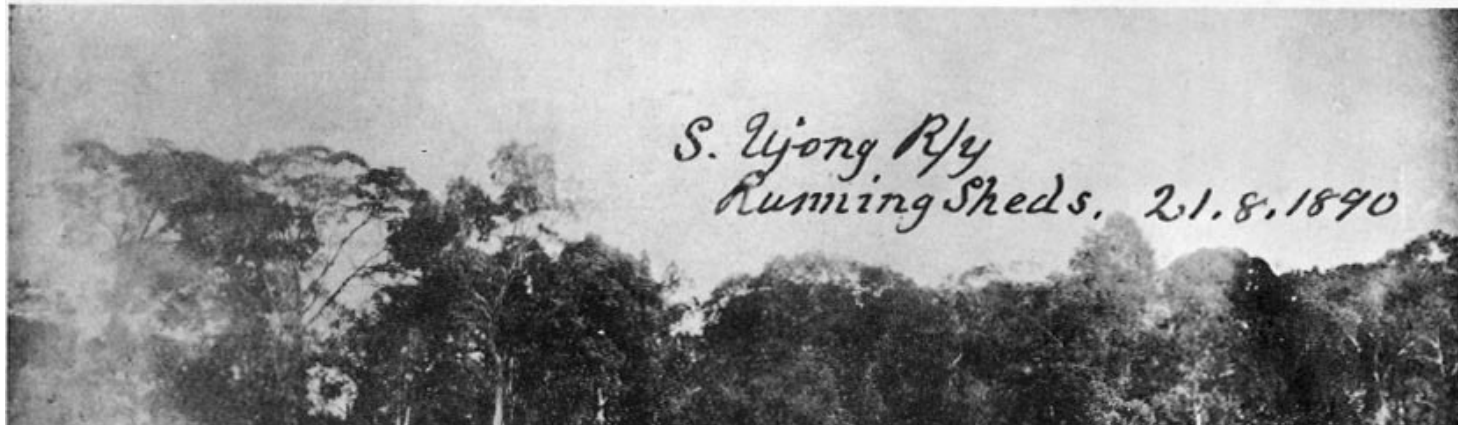 S. Ujong R/y
Running Sheds. 21.8.1890